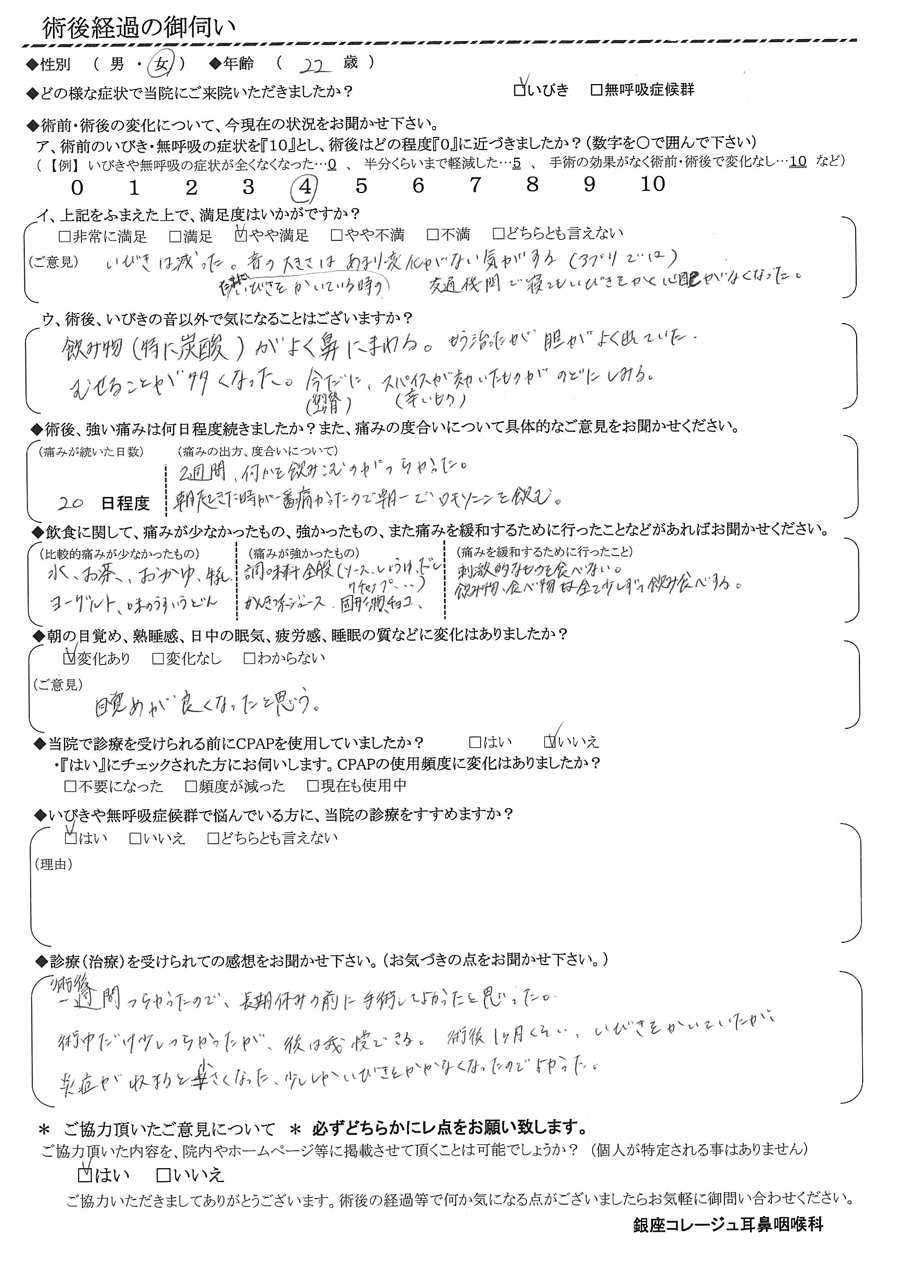 術後経過の御伺い
◆性別 ( 男 ・ 女 ) ◆年齢 ( 22 歳 )
◆どの様な症状で当院にご来院いただきましたか? ☑いびき □無呼吸症候群
◆術前・術後の変化について、今現在の状況をお聞かせ下さい。
ア、術前のいびき・無呼吸の症状を『10』とし、術後はどの程度『0』に近づきましたか?(数字を〇で囲んで下さい)
(【例】 いびきや無呼吸の症状が全くなくなった…0 、 半分くらいまで軽減した…5 、 手術の効果がなく術前・術後で変化なし…10 など)
0 1 2 3 4 5 6 7 8 9 10
イ、上記をふまえた上で、満足度はいかがですか?
□非常に満足 □満足 ☑やや満足 □やや不満 □不満 □どちらとも言えない
(ご意見) いびきは減った。音の大きさはあまり変化がない気がする(アプリでは)
たまにいびきをかいている時の 交通機関で寝てもいびきをかく心配がなくなった。
ウ、術後、いびきの音以外で気になることはございますか?
飲み物(特に炭酸)がよく鼻にまわる。もう治ったが胆がよく出ていた.
むせることが多くなった。今だに、スパイスが効いたものがのどにしみる。
(辛いもの)
◆術後、強い痛みは何日程度続きましたか?また、痛みの度合いについて具体的なご意見をお聞かせください。
(痛みが続いた日数) (痛みの出方、度合いについて)
2週間、何かを飲みこむのがつらかった。
20 日程度 朝起きた時が一番痛かったので朝一でロキソニンを飲む。
◆飲食に関して、痛みが少なかったもの、強かったもの、また痛みを緩和するために行ったことなどがあればお聞かせください。
(比較的痛みが少なかったもの) (痛みが強かったもの) (痛みを緩和するために行ったこと)
水、お茶、おかゆ、牛乳 調味料全般(ソース、しょうゆ、だし 刺激的なものを食べない。
ケチャップ...) 飲み物、食べ物は全て少しずつ飲み食べする。
ヨーグルト、味のうすいうどん かんきつ系ジュース、固形物、チョコ、
◆朝の目覚め、熟睡感、日中の眠気、疲労感、睡眠の質などに変化はありましたか?
☑変化あり □変化なし □わからない
(ご意見)
目覚めが良くなったと思う。
◆当院で診療を受けられる前にCPAPを使用していましたか? □はい ☑いいえ
・『はい』にチェックされた方にお伺いします。CPAPの使用頻度に変化はありましたか?
□不要になった □頻度が減った □現在も使用中
◆いびきや無呼吸症候群で悩んでいる方に、当院の診療をすすめますか?
☑はい □いいえ □どちらとも言えない
(理由)
◆診療(治療)を受けられての感想をお聞かせ下さい。(お気づきの点をお聞かせ下さい。)
術後
一週間つらかったので、長期休みの前に手術してよかったと思った。
術中だけ少しつらかったが、後は我慢できる。術後1ヶ月くらい、いびきをかいていたが、
炎症が収まると小さくなった、少ししかいびきをかかなくなったのでよかった。
* ご協力頂いたご意見について * 必ずどちらかにレ点をお願い致します。
ご協力頂いた内容を、院内やホームページ等に掲載させて頂くことは可能でしょうか? (個人が特定される事はありません)
☑はい □いいえ
ご協力いただきましてありがとうございます。術後の経過等で何か気になる点がございましたらお気軽に御問い合わせください。
銀座コレージュ耳鼻咽喉科